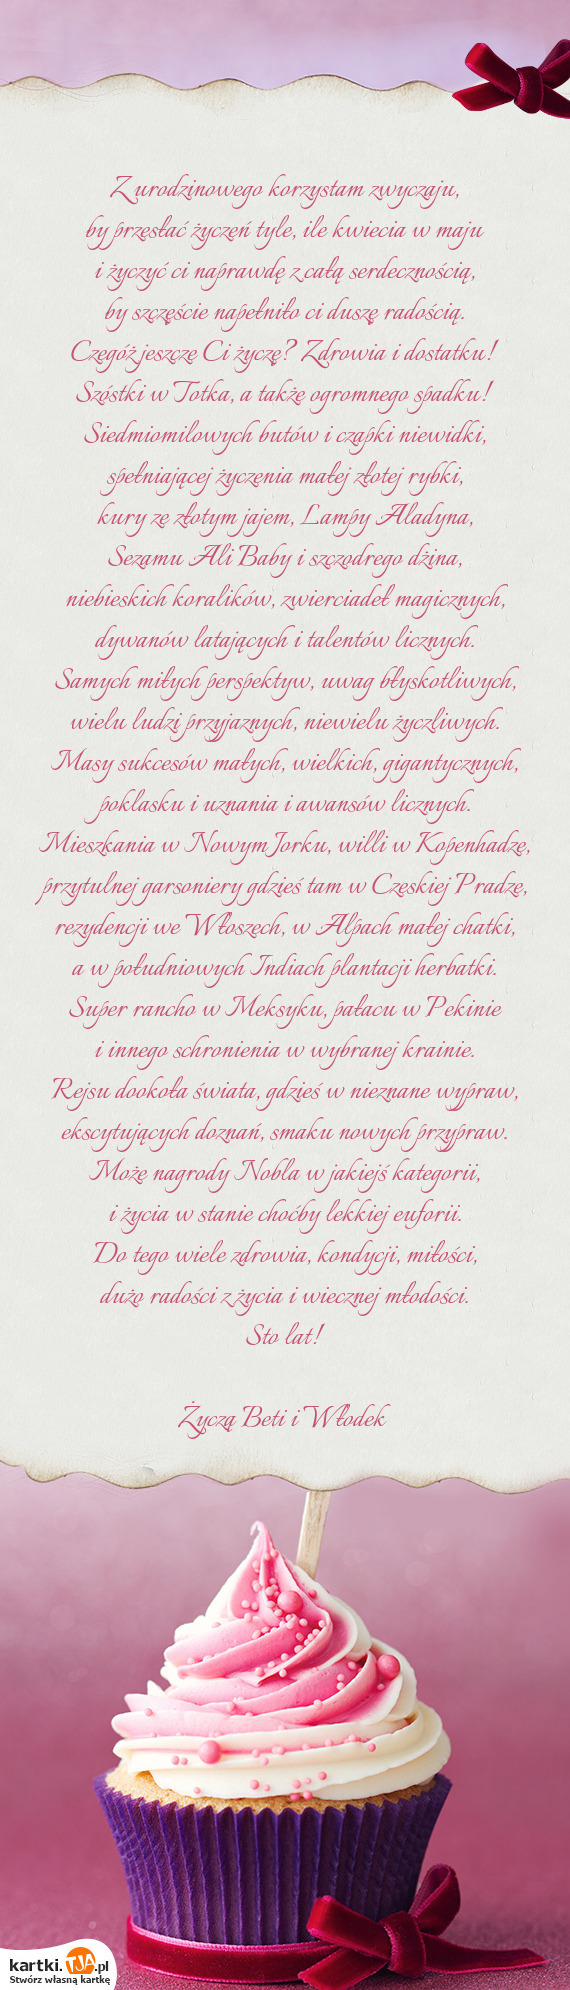 Z urodzinowego korzystam zwyczaju,
by przesłać życzeń tyle, ile kwiecia w maju
i życzyć ci naprawdę z całą serdecznością,
by szczęście napełniło ci duszę radością.
Czegóż jeszcze Ci życzę? Zdrowia i dostatku!
Szóstki w Totka, a także ogromnego spadku!
Siedmiomilowych butów i czapki niewidki,
spełniającej życzenia małej złotej rybki,
kury ze złotym jajem, Lampy Aladyna,
Sezamu Ali Baby i szczodrego dżina,
niebieskich koralików, zwierciadeł magicznych,
dywanów latających i talentów licznych.
Samych miłych perspektyw, uwag błyskotliwych,
wielu ludzi przyjaznych, niewielu życzliwych.
Masy sukcesów małych, wielkich, gigantycznych,
poklasku i uznania i awansów licznych.
Mieszkania w Nowym Jorku, willi w Kopenhadze,
przytulnej garsoniery gdzieś tam w Czeskiej Pradze,
rezydencji we Włoszech, w Alpach małej chatki,
a w południowych Indiach plantacji herbatki.
Super rancho w Meksyku, pałacu w Pekinie
i innego schronienia w wybranej krainie.
Rejsu dookoła świata, gdzieś w nieznane wypraw,
ekscytujących doznań, smaku nowych przypraw.
Może nagrody Nobla w jakiejś kategorii,
i życia w stanie choćby lekkiej euforii.
Do tego wiele zdrowia, kondycji, miłości,
dużo radości z życia i wiecznej młodości.
Sto lat!
Życzą Beti i Włodek
kartki.TJA.pl
Stwórz własną kartkę